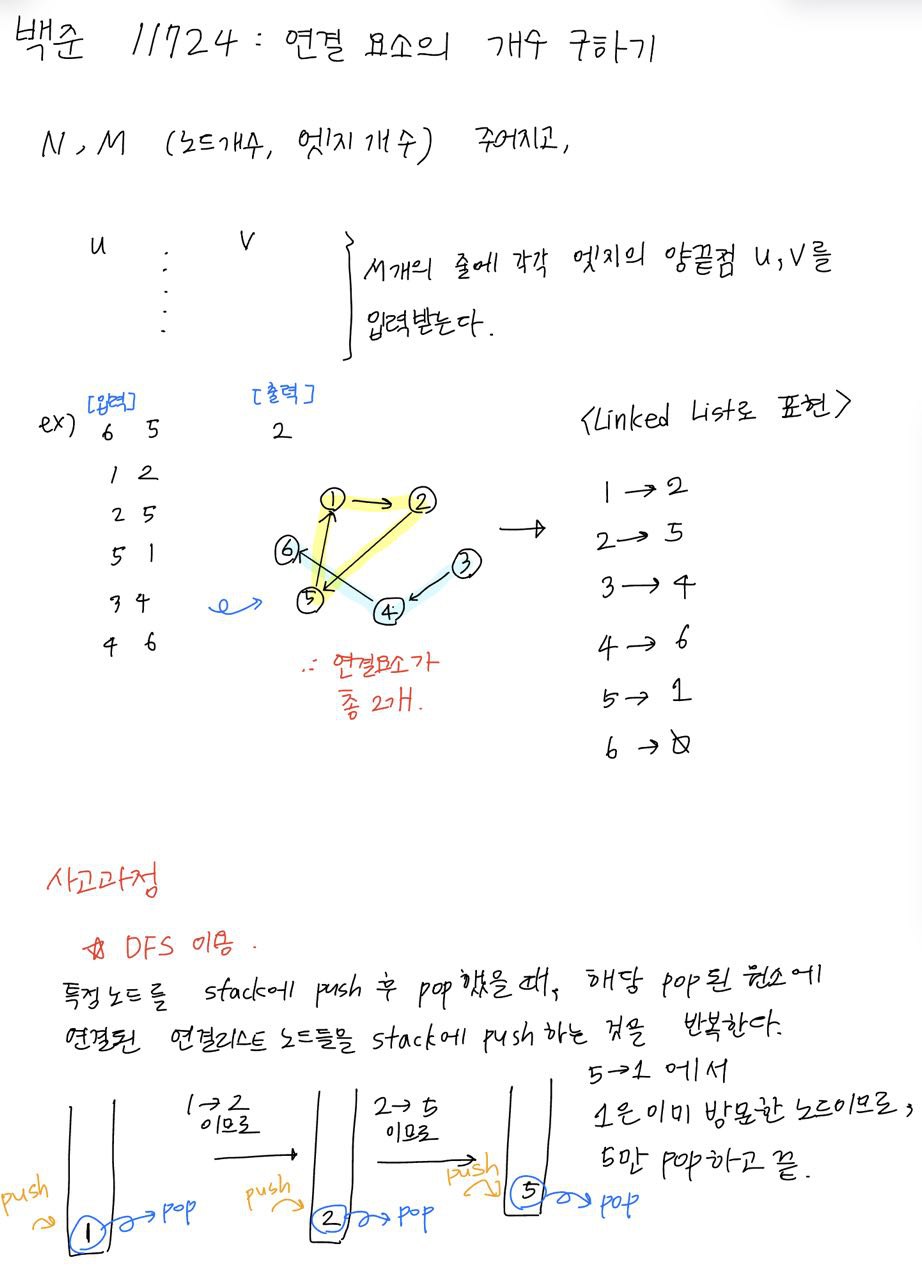 백준 11724 : 연결 요소의 개수 구하기
N, M (노드개수, 엣지 개수) 주어지고,
u v
M개의 줄에 각각 엣지의 양끝점 u, v를
입력받는다.
[입력] [출력]
ex) 6 5 2
1 2
2 5
5 1
3 4
4 6
1 2 6 3 5 4
∴ 연결요소가
총 2개.
<Linked List로 표현>
1 → 2
2 → 5
3 → 4
4 → 6
5 → 1
6 → ∅
사고과정
☆ DFS 이용.
특정노드를 stack에 push 후 pop 했을 때, 해당 pop된 원소에
연결된 연결리스트 노드들을 stack에 push 하는 것을 반복한다.
push 1 pop
1 → 2
이므로
push 2 pop
2 → 5
이므로
push 5 pop
5 → 1 에서
1은 이미 방문한 노드이므로,
5만 pop하고 끝.